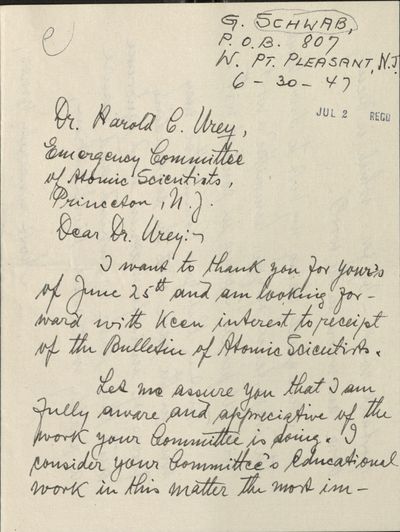 G. SCHWAB,
P.O.B. 807
W. PT. PLEASANT, N.J.
6-30-47
JUL 2 REC'D
Dr. Harold C. Urey,
Emergency Committee
of Atomic Scientists,
Princeton, N.J.
Dear Dr. Urey:-
I want to thank you for your's
of June 25th and am looking for-
ward with keen interest to receipt
of the Bulletin of Atomic Scientists.
Let me assure you that I am
fully aware and appreciative of the
work your Committee is doing. I
consider your Committee's Educational
work in this matter the most im-